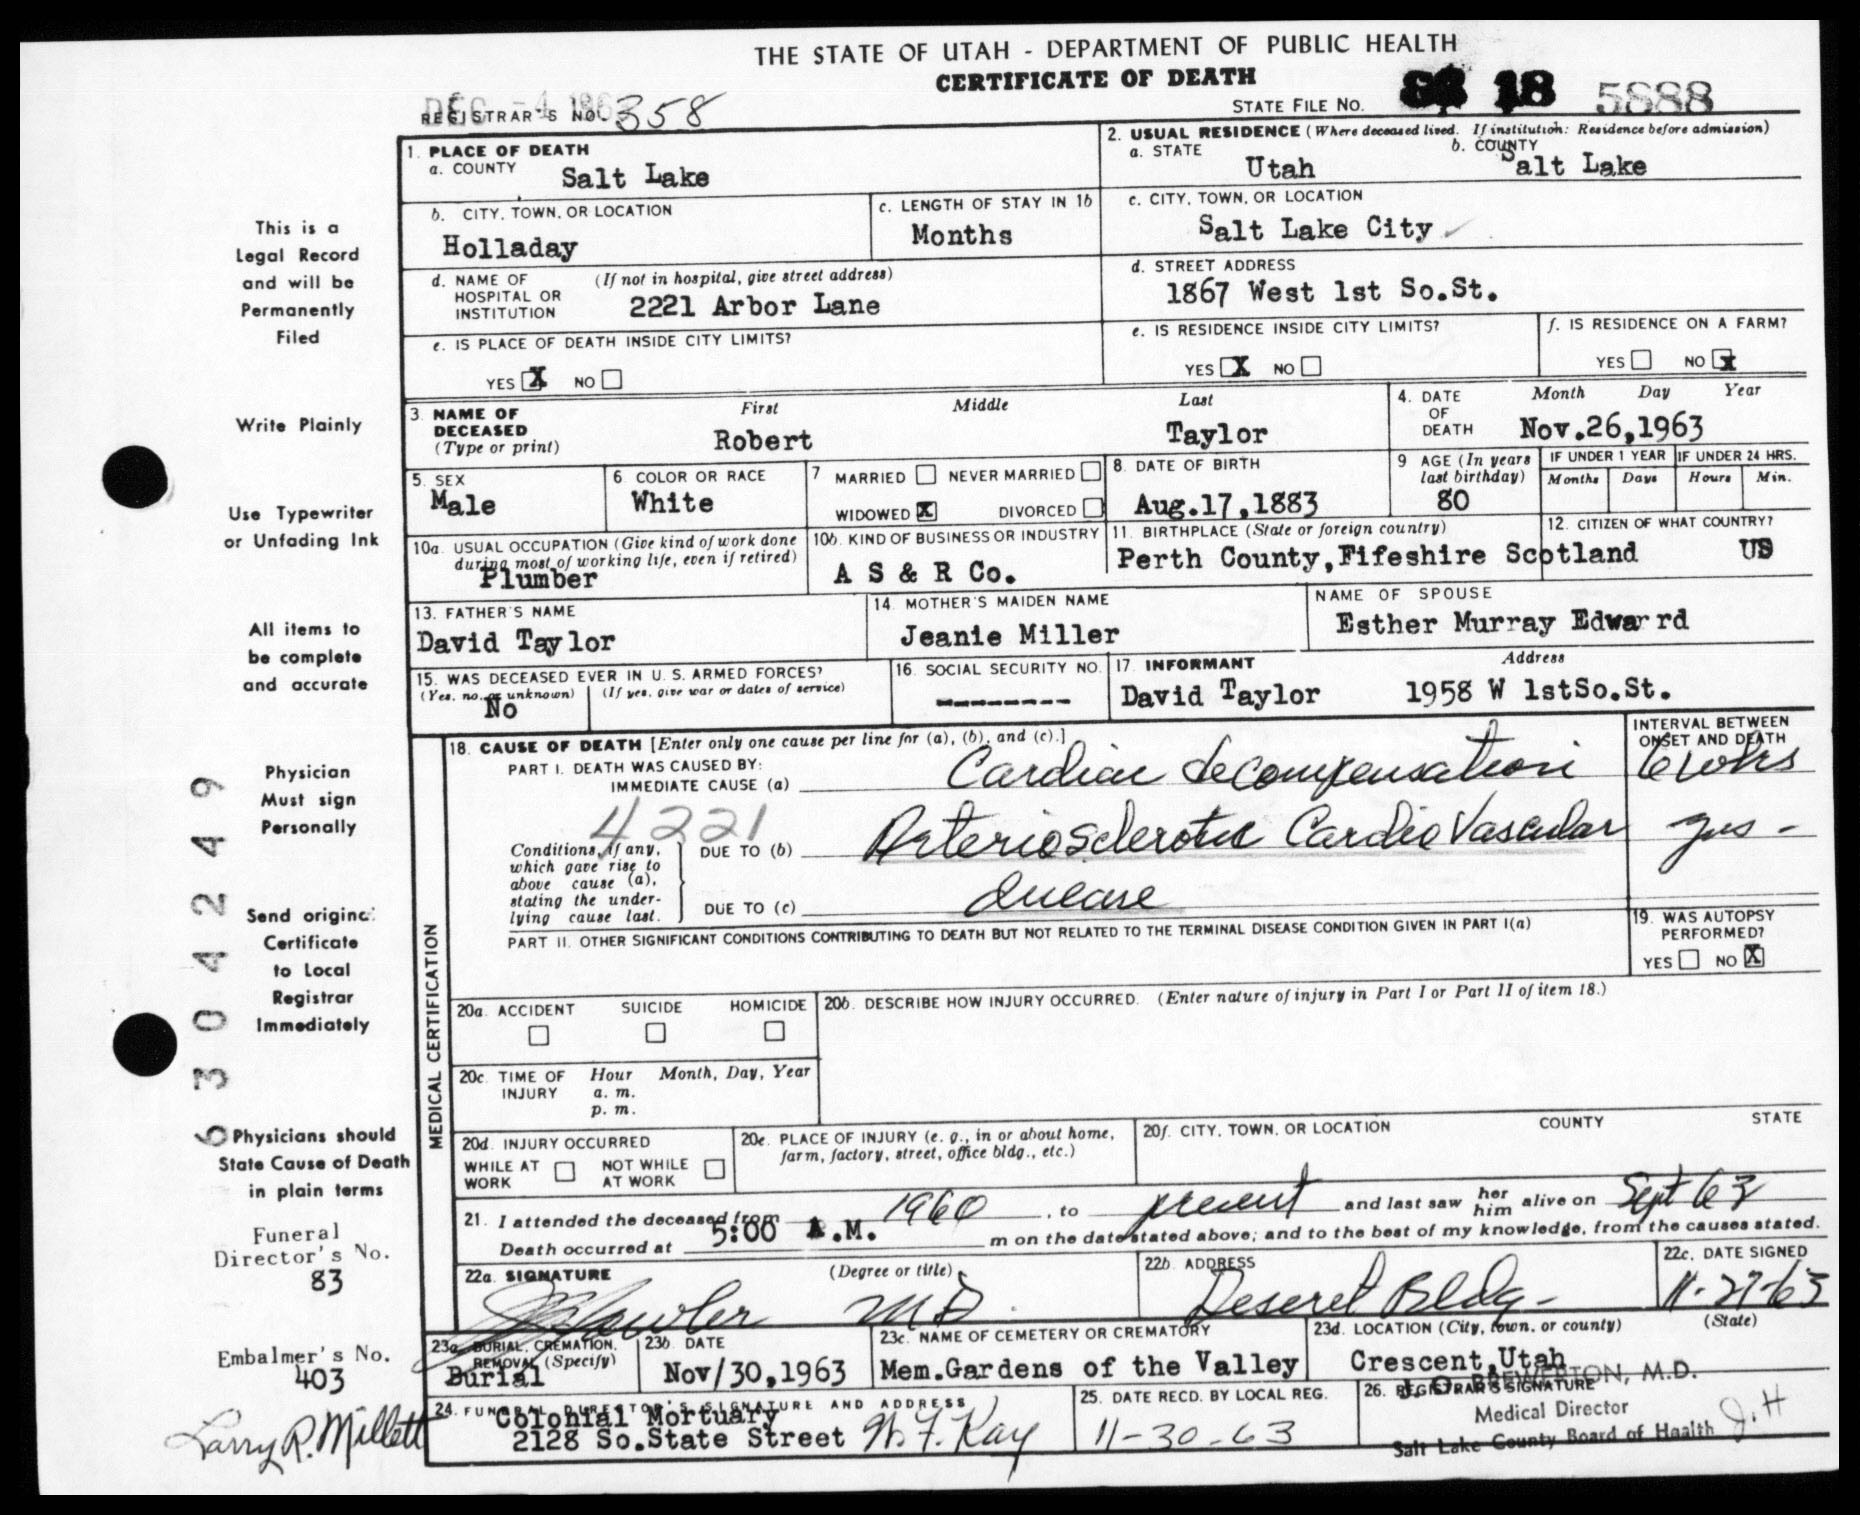 THE STATE OF UTAH - DEPARTMENT OF PUBLIC HEALTH
CERTIFICATE OF DEATH
DEC -4 1963
REGISTRAR'S NO. 358
STATE FILE NO. 18 5888
1. PLACE OF DEATH
a. COUNTY Salt Lake
2. USUAL RESIDENCE (Where deceased lived. If institution: Residence before admission)
a. STATE Utah b. COUNTY Salt Lake
b. CITY, TOWN, OR LOCATION Holladay
c. LENGTH OF STAY IN 1b Months
c. CITY, TOWN, OR LOCATION Salt Lake City
d. NAME OF HOSPITAL OR INSTITUTION (If not in hospital, give street address) 2221 Arbor Lane
d. STREET ADDRESS 1867 West 1st So.St.
e. IS PLACE OF DEATH INSIDE CITY LIMITS?
YES X NO
e. IS RESIDENCE INSIDE CITY LIMITS?
YES X NO
f. IS RESIDENCE ON A FARM?
YES NO X
3. NAME OF DECEASED (Type or print)
First Middle Last
Robert Taylor
4. DATE OF DEATH Month Day Year
Nov.26,1963
5. SEX Male
6. COLOR OR RACE White
7 MARRIED NEVER MARRIED
WIDOWED X DIVORCED
8. DATE OF BIRTH Aug.17,1883
9 AGE (In years last birthday) 80
IF UNDER 1 YEAR Months Days
IF UNDER 24 HRS. Hours Min.
10a. USUAL OCCUPATION (Give kind of work done during most of working life, even if retired) Plumber
10b. KIND OF BUSINESS OR INDUSTRY A S & R Co.
11. BIRTHPLACE (State or foreign country) Perth County,Fifeshire Scotland
12. CITIZEN OF WHAT COUNTRY? US
13. FATHER'S NAME David Taylor
14. MOTHER'S MAIDEN NAME Jeanie Miller
NAME OF SPOUSE Esther Murray Edwarrd
15. WAS DECEASED EVER IN U. S. ARMED FORCES?
(Yes, no, or unknown) (If yes, give war or dates of service)
No
16. SOCIAL SECURITY NO. ---------
17. INFORMANT Address
David Taylor 1958 W 1stSo.St.
MEDICAL CERTIFICATION
18. CAUSE OF DEATH [Enter only one cause per line for (a), (b), and (c).]
INTERVAL BETWEEN ONSET AND DEATH
PART I. DEATH WAS CAUSED BY:
IMMEDIATE CAUSE (a) Cardiac decompensation
4221
Conditions, if any, which gave rise to above cause (a), stating the underlying cause last.
DUE TO (b) Arteriosclerotic Cardio Vascular yrs -
DUE TO (c) disease
PART II. OTHER SIGNIFICANT CONDITIONS CONTRIBUTING TO DEATH BUT NOT RELATED TO THE TERMINAL DISEASE CONDITION GIVEN IN PART I(a)
19. WAS AUTOPSY PERFORMED?
YES NO X
20a. ACCIDENT SUICIDE HOMICIDE
20b. DESCRIBE HOW INJURY OCCURRED. (Enter nature of injury in Part I or Part II of item 18.)
20c. TIME OF INJURY Hour Month, Day, Year
a. m.
p. m.
20d. INJURY OCCURRED
WHILE AT WORK NOT WHILE AT WORK
20e. PLACE OF INJURY (e. g., in or about home, farm, factory, street, office bldg., etc.)
20f. CITY, TOWN, OR LOCATION COUNTY STATE
21. I attended the deceased from 1960, to present and last saw her him alive on Sept 63
Death occurred at 5:00 A.M. m on the date stated above; and to the best of my knowledge, from the causes stated.
22a. SIGNATURE (Degree or title) M.D.
22b. ADDRESS Deseret Bldg-
22c. DATE SIGNED 11-27-63
23a. BURIAL, CREMATION, REMOVAL (Specify) Burial
23b. DATE Nov/30,1963
23c. NAME OF CEMETERY OR CREMATORY Mem.Gardens of the Valley
23d. LOCATION (City, town, or county) (State) Crescent,Utah
24. FUNERAL DIRECTOR'S SIGNATURE AND ADDRESS
Colonial Mortuary
2128 So.State Street W. F. Kay
25. DATE RECD. BY LOCAL REG. 11-30-63
26. REGISTRAR'S SIGNATURE
BREWERTON, M.D.
Medical Director
Salt Lake County Board of Health J.H
This is a
Legal Record
and will be
Permanently
Filed
Write Plainly
Use Typewriter
or Unfading Ink
All items to
be complete
and accurate
Physician
Must sign
Personally
Send original
Certificate
to Local
Registrar
Immediately
Physicians should
State Cause of Death
in plain terms
Funeral
Director's No.
83
Embalmer's No.
403
Larry R. Millett
6304249